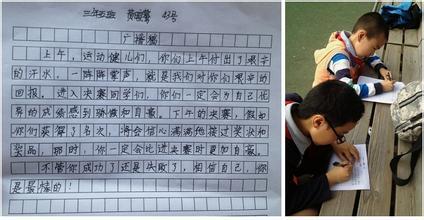 三年五班 黄 42号
广播稿
上午,运动健儿们,你们上午付出了艰辛
的汗水,一阵阵掌声,就是我们对你艰辛的
回报。进入决赛同学们,你们一定会为自己优
异的成绩感到骄傲和自豪。下午的决赛,假如
你们获得了名次,将会信心满满地接过奖状和
奖品,那时,你一定会比进决赛时更加自豪。
不管你成功了还是失败了,相信自己,你
是最棒的!